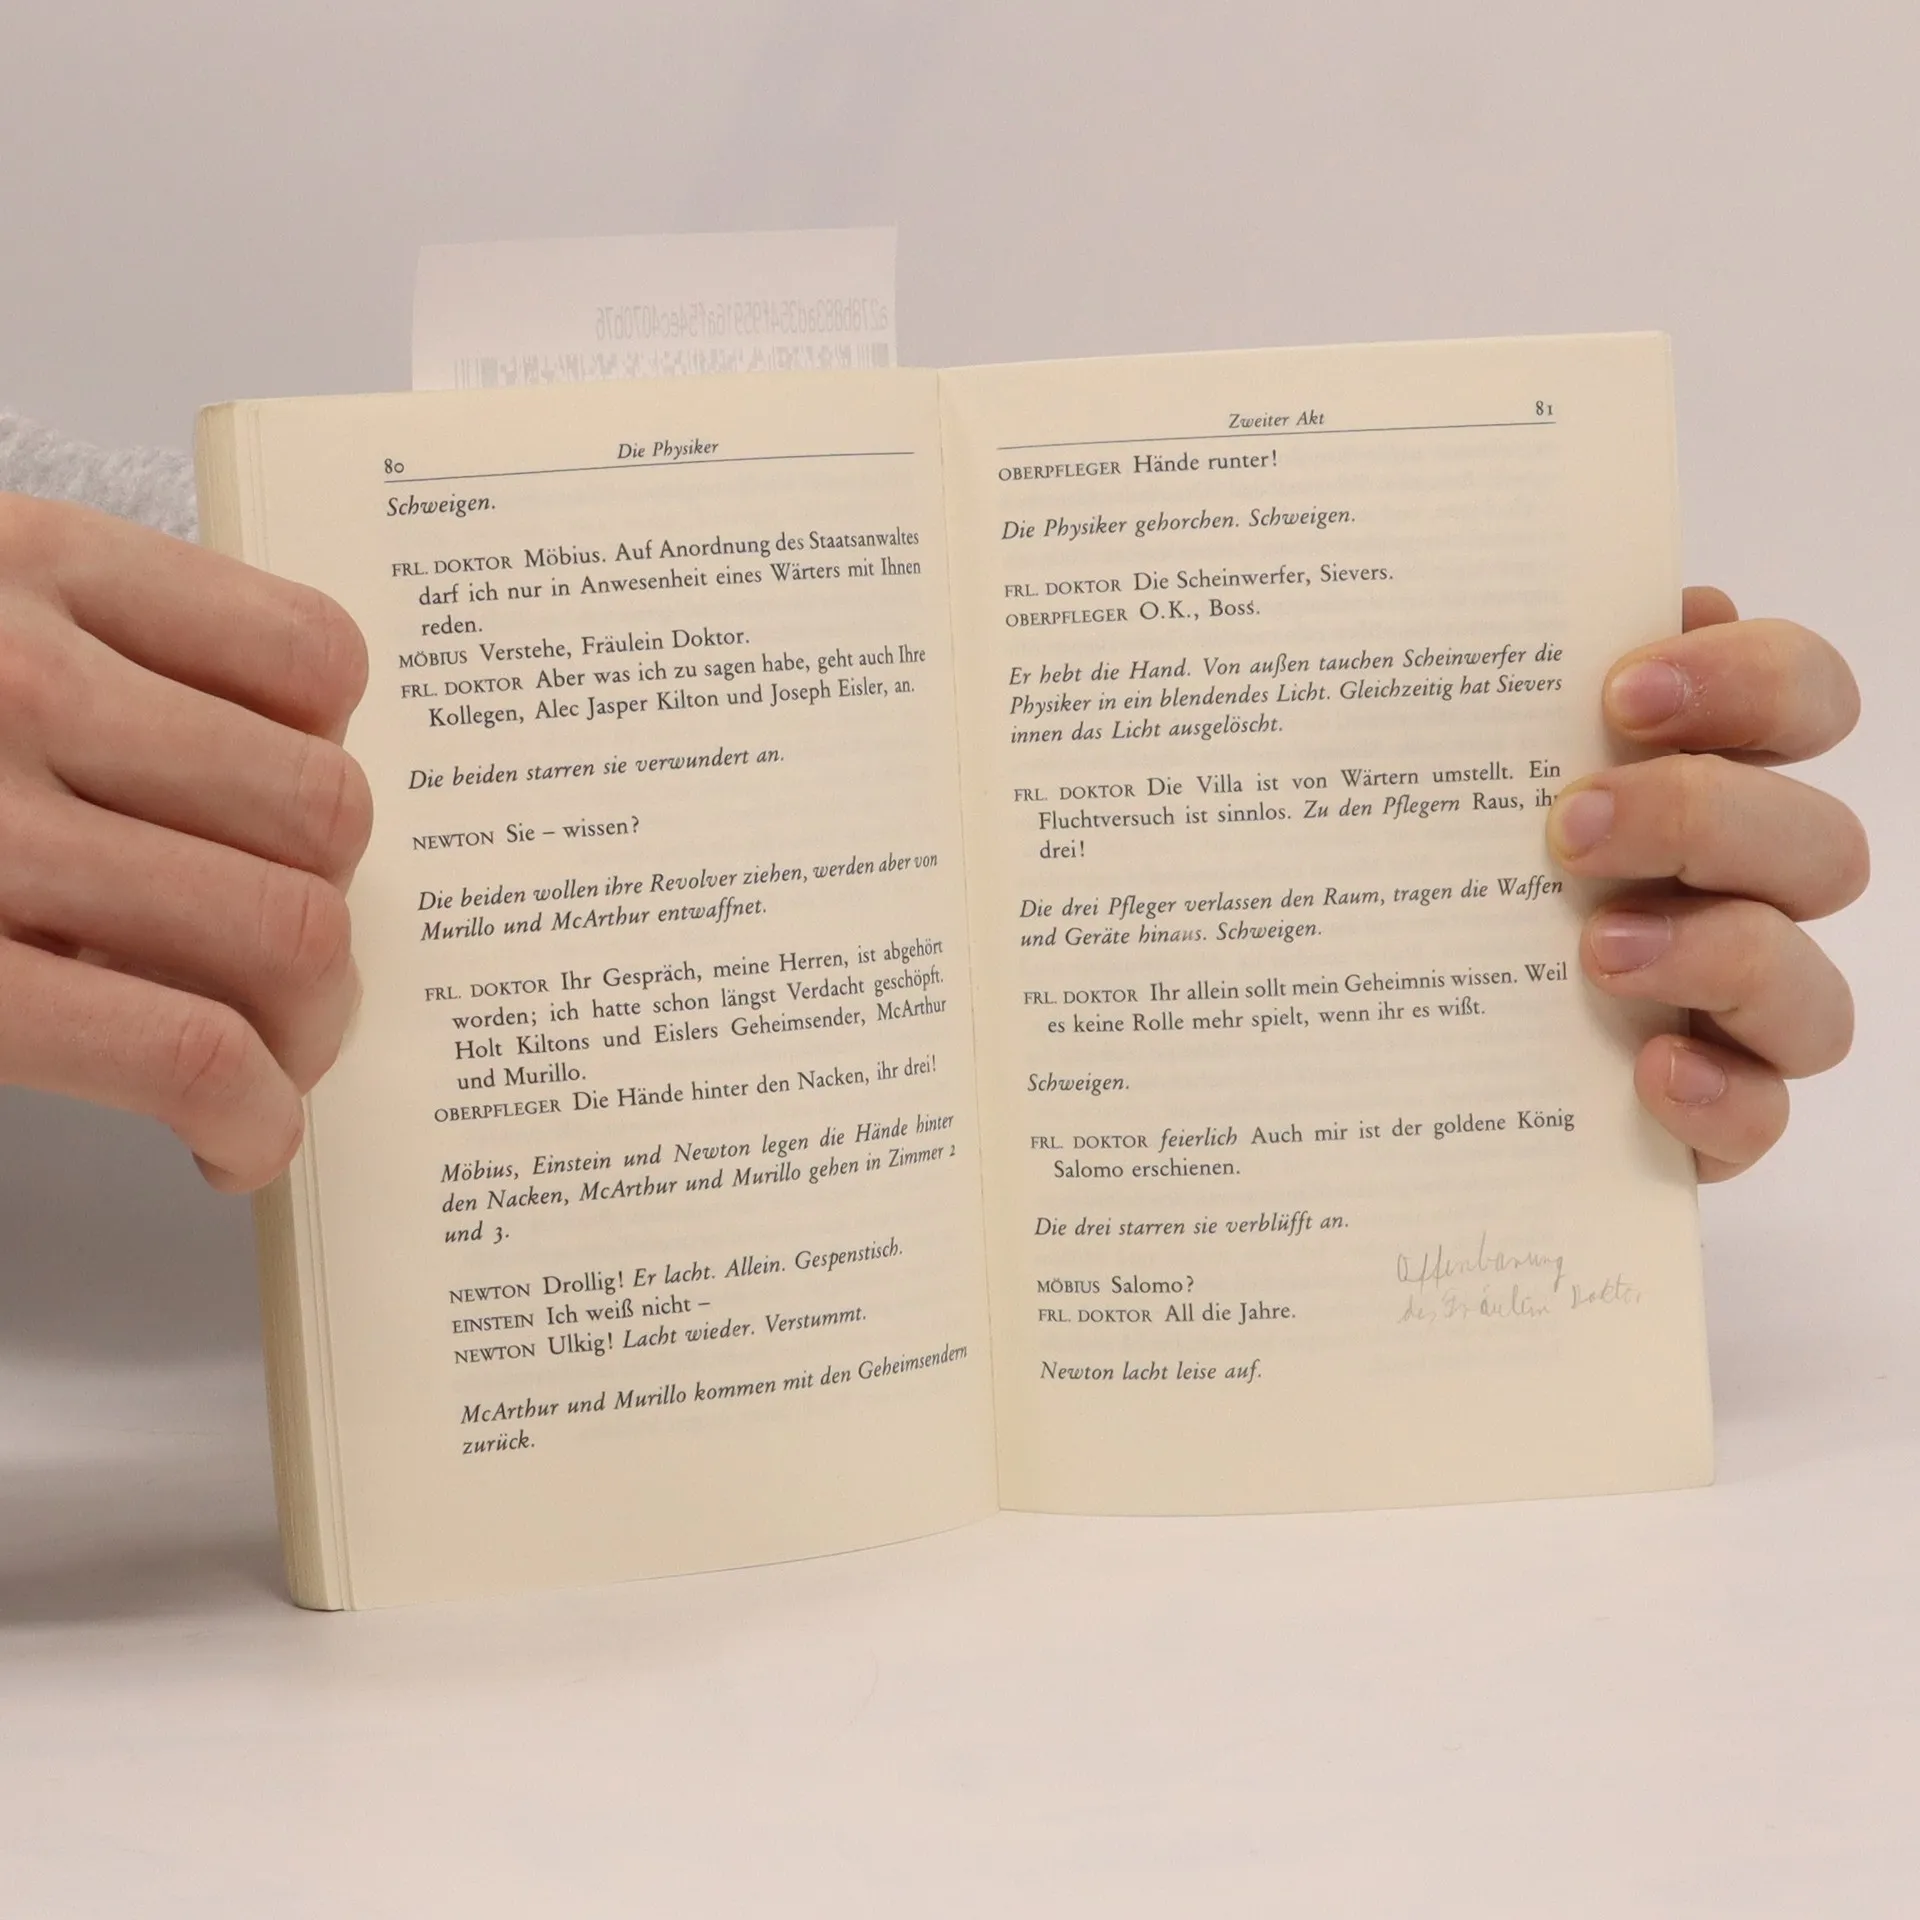 a278b863ad354f95916af54ec4070b76
80 Die Physiker
Schweigen.
FRL. DOKTOR Möbius. Auf Anordnung des Staatsanwaltes
darf ich nur in Anwesenheit eines Wärters mit Ihnen
reden.
MÖBIUS Verstehe, Fräulein Doktor.
FRL. DOKTOR Aber was ich zu sagen habe, geht auch Ihre
Kollegen, Alec Jasper Kilton und Joseph Eisler, an.
Die beiden starren sie verwundert an.
NEWTON Sie – wissen?
Die beiden wollen ihre Revolver ziehen, werden aber von
Murillo und McArthur entwaffnet.
FRL. DOKTOR Ihr Gespräch, meine Herren, ist abgehört
worden; ich hatte schon längst Verdacht geschöpft.
Holt Kiltons und Eislers Geheimsender, McArthur
und Murillo.
OBERPFLEGER Die Hände hinter den Nacken, ihr drei!
Möbius, Einstein und Newton legen die Hände hinter
den Nacken, McArthur und Murillo gehen in Zimmer 2
und 3.
NEWTON Drollig! Er lacht. Allein. Gespenstisch.
EINSTEIN Ich weiß nicht –
NEWTON Ulkig! Lacht wieder. Verstummt.
McArthur und Murillo kommen mit den Geheimsendern
zurück.
Zweiter Akt 81
OBERPFLEGER Hände runter!
Die Physiker gehorchen. Schweigen.
FRL. DOKTOR Die Scheinwerfer, Sievers.
OBERPFLEGER O.K., Boss.
Er hebt die Hand. Von außen tauchen Scheinwerfer die
Physiker in ein blendendes Licht. Gleichzeitig hat Sievers
innen das Licht ausgelöscht.
FRL. DOKTOR Die Villa ist von Wärtern umstellt. Ein
Fluchtversuch ist sinnlos. Zu den Pflegern Raus, ihr
drei!
Die drei Pfleger verlassen den Raum, tragen die Waffen
und Geräte hinaus. Schweigen.
FRL. DOKTOR Ihr allein sollt mein Geheimnis wissen. Weil
es keine Rolle mehr spielt, wenn ihr es wißt.
Schweigen.
FRL. DOKTOR feierlich Auch mir ist der goldene König
Salomo erschienen.
Die drei starren sie verblüfft an.
MÖBIUS Salomo?
FRL. DOKTOR All die Jahre.
Newton lacht leise auf.
Offenbarung
des Fräulein Doktor